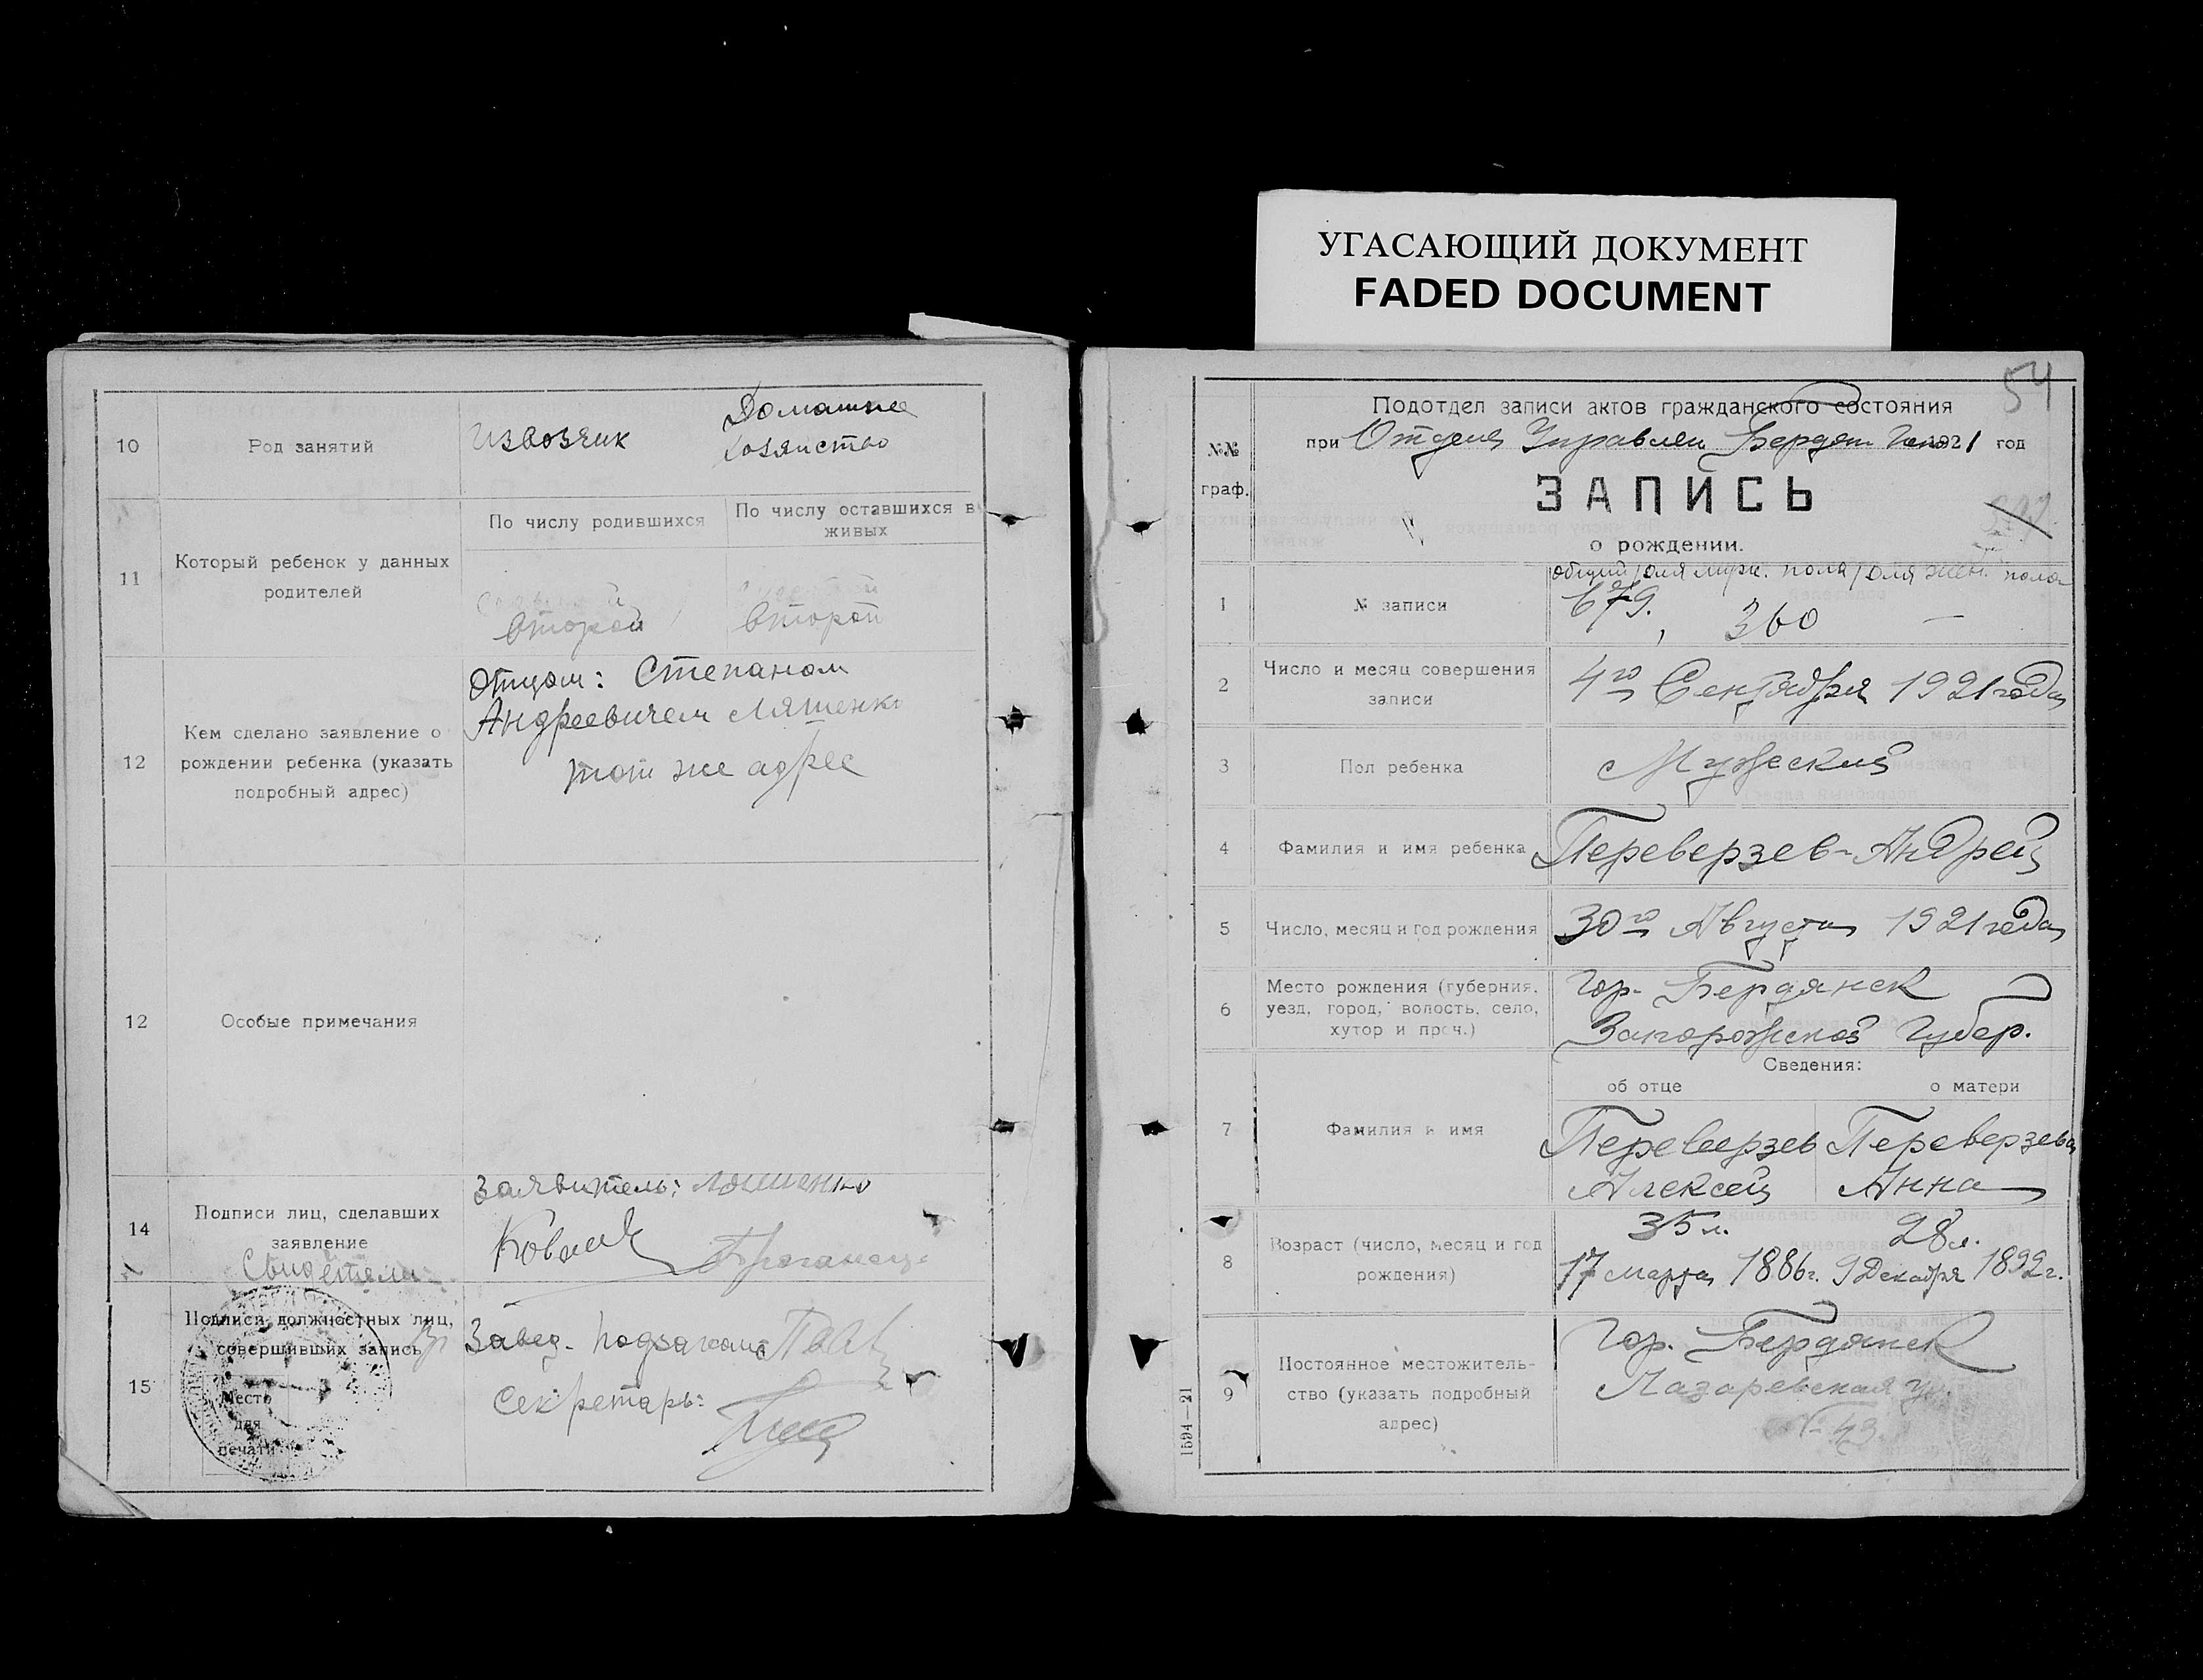 УГАСАЮЩИЙ ДОКУМЕНТ
FADED DOCUMENT
10
Род занятий
Извозчик
Домашнее
хозяйство
11
Который ребенок у данных
родителей
По числу родившихся
По числу оставшихся в
живых
Второй
Второй
12
Кем сделано заявление о
рождении ребенка (указать
подробный адрес)
Отцом: Степаном
Андреевичем Ляшенко
тот же адрес
12
Особые примечания
14
Подписи лиц, сделавших
заявление
Свидетели
Заявитель: Ляшенко
15
Подписи должностных лиц,
совершивших запись
Место
для
печати
Завед. подзагсом
Секретарь:
54
№№
граф.
Подотдел записи актов гражданского состояния
при Отделе Управлен Бердян 1921 год
ЗАПИСЬ
о рождении.
1
№ записи
общий/для мужск. пола/для жен. пола
679. 360 —
2
Число и месяц совершения
записи
4го Сентября 1921 года
3
Пол ребенка
Мужеский
4
Фамилия и имя ребенка
Переверзев-Андрей
5
Число, месяц и год рождения
30го Августа 1921 года
6
Место рождения (губерния,
уезд, город, волость, село,
хутор и проч.)
Гор. Бердянск
Запорожской Губер.
Сведения:
об отце
о матери
7
Фамилия и имя
Переверзев Переверзева
Алексей Анна
8
Возраст (число, месяц и год
рождения)
35 л. 28 л.
17 марта 1886 г. 9 Декабря 1892 г.
9
Постоянное местожитель-
ство (указать подробный
адрес)
Гор. Бердянск
Лазаревская ул.
№ 43.
1594—21